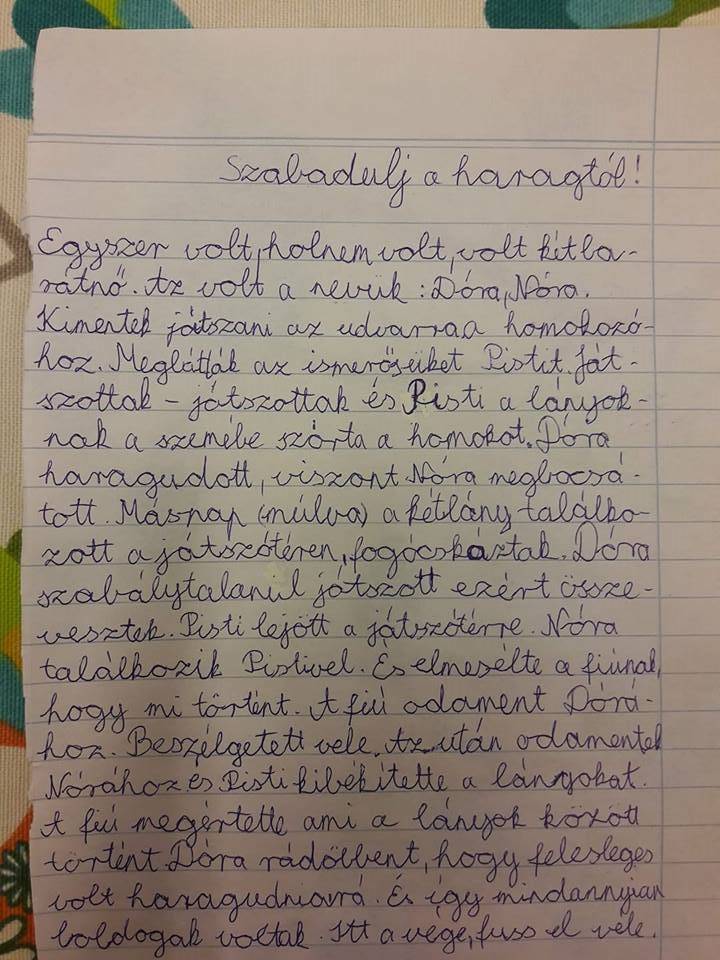 Szabadulj a haragtól!
Egyszer volt, holnem volt, volt kétba-
rátnő. Az volt a nevük: Dóra, Nóra.
Kimentek játszani az udvarraa homokozó-
hoz. Meglátták az ismerősüket Pistit. Ját-
szottak - játszottak és Pisti a lányok-
nak a szemébe szórta a homokot. Dóra
haragudott, viszont Nóra megbocsá-
tott. Másnap (múlva) a kétlány találko-
zott a játszótéren, fogócskáztak. Dóra
szabálytalanul játszott ezért össze-
vesztek. Pisti lejött a játszótérre. Nóra
találkozik Pistivel. És elmesélte a fiúnak,
hogy mi történt. A fiú odament Dórá-
hoz. Beszélgetett vele. Az után odamentek
Nórához és Pisti kibékítette a lányokat.
A fiú megértette ami a lányok között
történt. Dóra rádöbbent, hogy felesleges
volt haragudnia rá. És így mindannyian
boldogak voltak. Itt a vége, fuss el véle.